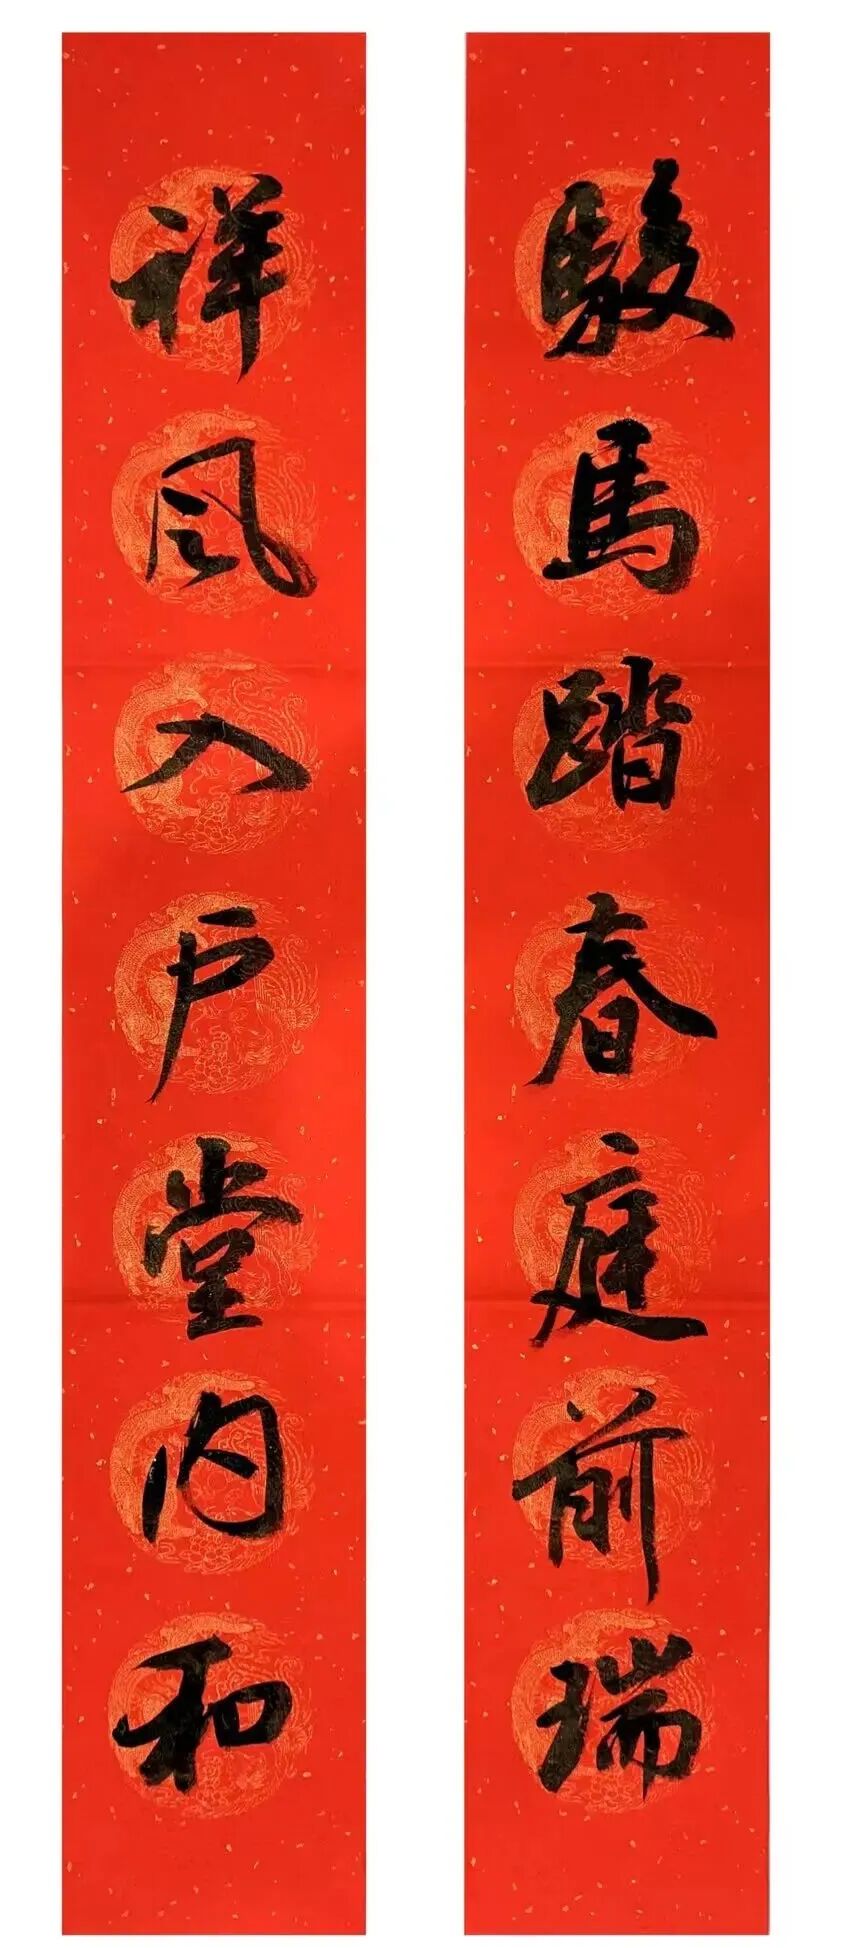 駿馬踏春庭前瑞
祥风入户堂内和